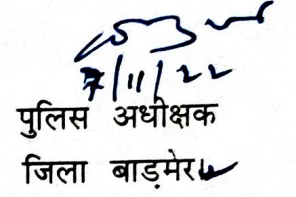 7/11/22
पुलिस अधीक्षक
जिला बाड़मेर